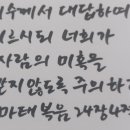 수께서 대답하여
르시되 너희가
사람의 미혹을
받지 않도록 주의하
마태복음 24장4절